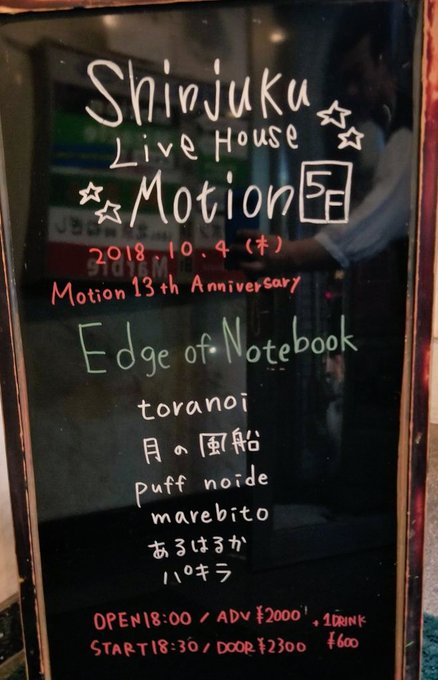 Shinjuku
Live House
Motion 5F
2018.10.4 (木)
Motion 13th Anniversary
Edge of Notebook
toranoi
月の風船
puff noide
marebito
あるはるか
パキラ
OPEN 18:00 / ADV ¥2000 + 1DRINK
START 18:30 / DOOR ¥2300 ¥600